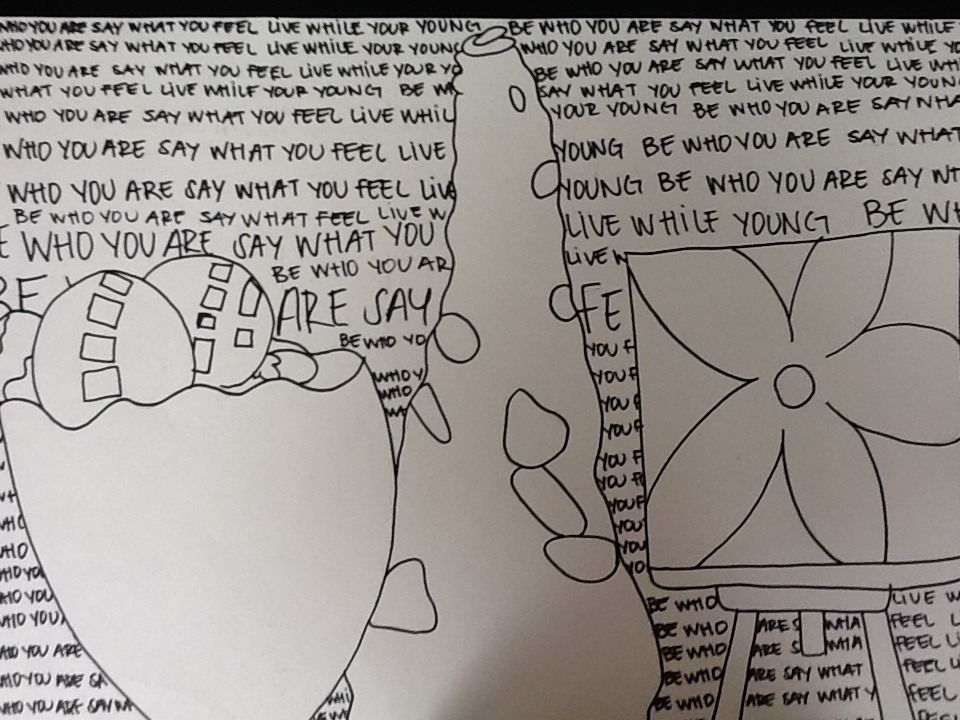 WHO YOU ARE SAY WHAT YOU FEEL LIVE WHILE YOUR YOUNG BE WHO YOU ARE SAY WHAT YOU FEEL LIVE WHILE
WHO YOU ARE SAY WHAT YOU FEEL LIVE WHILE YOUR YOUNG WHO YOU ARE SAY WHAT YOU FEEL LIVE WHILE YO
WHO YOU ARE SAY WHAT YOU FEEL LIVE WHILE YOUR YO BE WHO YOU ARE SAY WHAT YOU FEEL LIVE WHI
WHAT YOU FEEL LIVE WHILE YOUR YOUNG BE WH SAY WHAT YOU FEEL LIVE WHILE YOUR YOUN
WHO YOU ARE SAY WHAT YOU FEEL LIVE WHIL YOUR YOUNG BE WHO YOU ARE SAY WHA
WHO YOU ARE SAY WHAT YOU FEEL LIVE YOUNG BE WHO YOU ARE SAY WHAT
WHO YOU ARE SAY WHAT YOU FEEL LIVE YOUNG BE WHO YOU ARE SAY WH
BE WHO YOU ARE SAY WHAT FEEL LIVE W LIVE WHILE YOUNG BE WH
E WHO YOU ARE SAY WHAT YOU LIVE W
BE WHO YOU AR
BE ARE SAY FE
BE WHO YO YOU F
WHO Y YOU F
WHO YOU F
W YOU F
YOU F
YOU F
YOU F
WHO YOU
WHO YOU
WHO YOU YO
WHO YOU BE WHO LIVE W
WHO YOU BE WHO ARE S WHA FEEL L
WHO YOU ARE BE WHO ARE S WHA FEEL LI
WHO YOU ARE SA BE WHO ARE SAY WHAT FEEL LI
WHO YOU ARE SAY WH WHI BE WHO ARE SAY WHAT Y FEEL